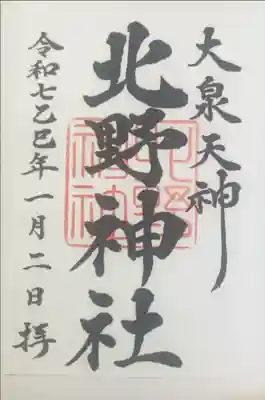 大泉天神
北野神社
令和七乙巳年一月二日拝
北野
神社